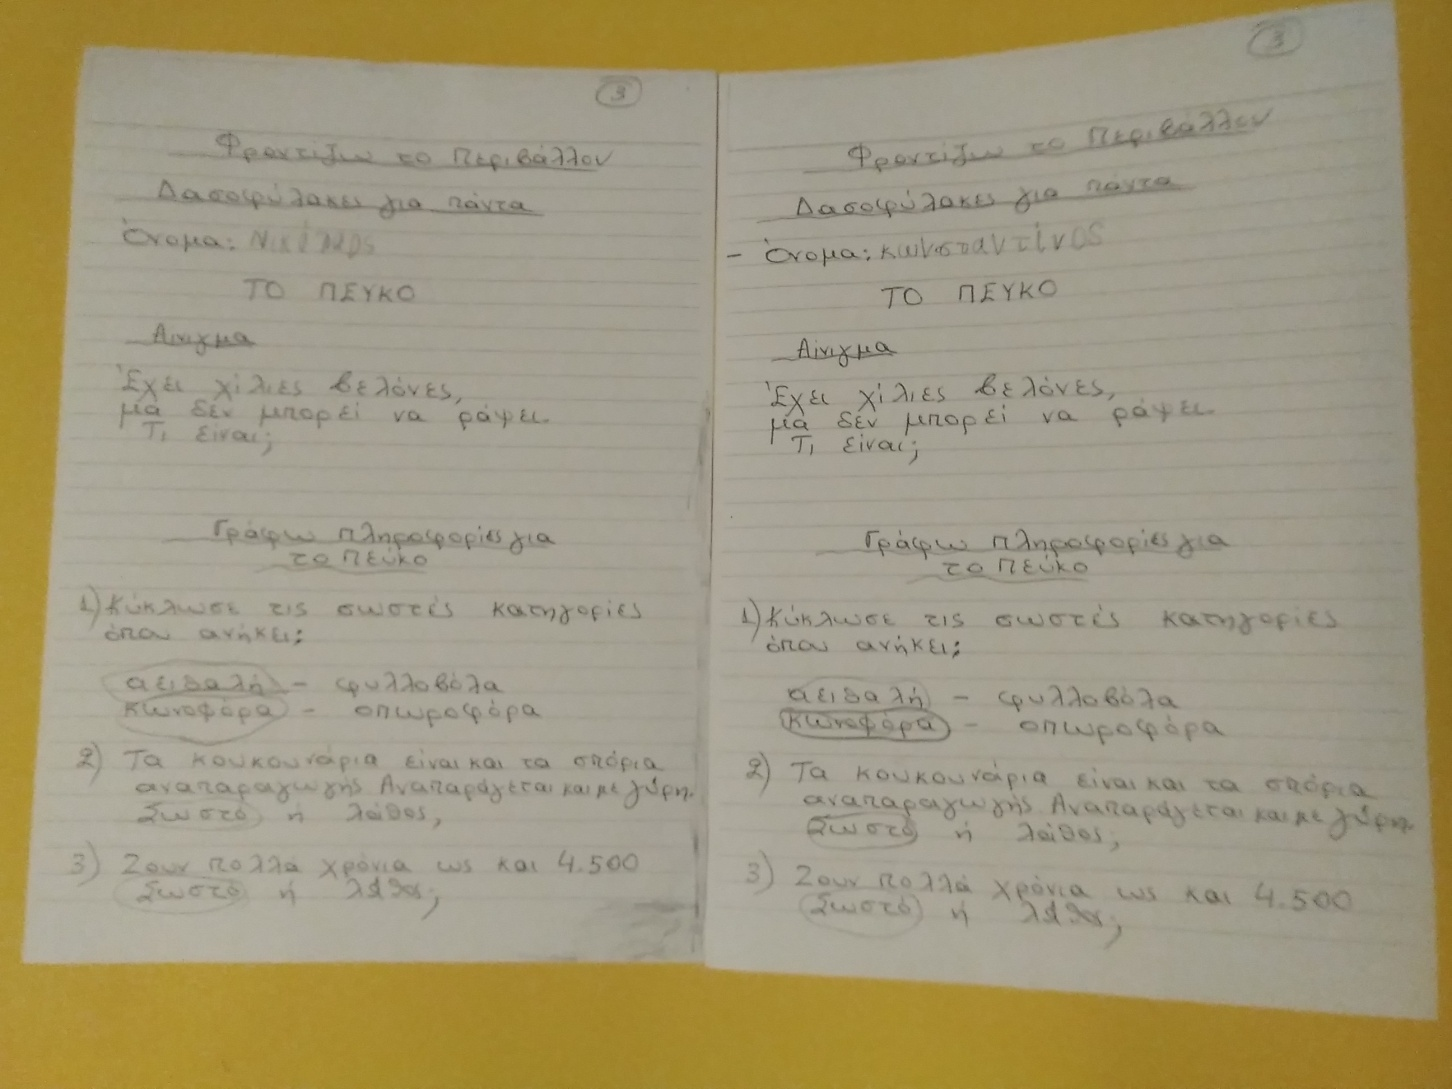 3
Φροντίζω το Περιβάλλον
Δασοφύλακες για πάντα
Όνομα: Νικόλαος
ΤΟ ΠΕΥΚΟ
Αίνιγμα
Έχει χίλιες βελόνες,
μα δεν μπορεί να ράψει.
Τι είναι;
Γράφω πληροφορίες για
το πεύκο
1) Κύκλωσε τις σωστές κατηγορίες
όπου ανήκει:
αειθαλή - φυλλοβόλα
κωνοφόρα - οπωροφόρα
2) Τα κουκουνάρια είναι και τα σπόρια
αναπαραγωγής Αναπαράγεται και με γύρη.
Σωστό ή λάθος;
3) Ζουν πολλά χρόνια ως και 4.500
Σωστό ή λάθος;
3
Φροντίζω το Περιβάλλον
Δασοφύλακες για πάντα
- Όνομα: κωνσταντίνος
ΤΟ ΠΕΥΚΟ
Αίνιγμα
Έχει χίλιες βελόνες,
μα δεν μπορεί να ράψει.
Τι είναι;
Γράφω πληροφορίες για
το πεύκο
1) Κύκλωσε τις σωστές κατηγορίες
όπου ανήκει:
αειθαλή - φυλλοβόλα
κωνοφόρα - οπωροφόρα
2) Τα κουκουνάρια είναι και τα σπόρια
αναπαραγωγής Αναπαράγεται και με γύρη.
Σωστό ή λάθος;
3) Ζουν πολλά χρόνια ως και 4.500
Σωστό ή λάθος;